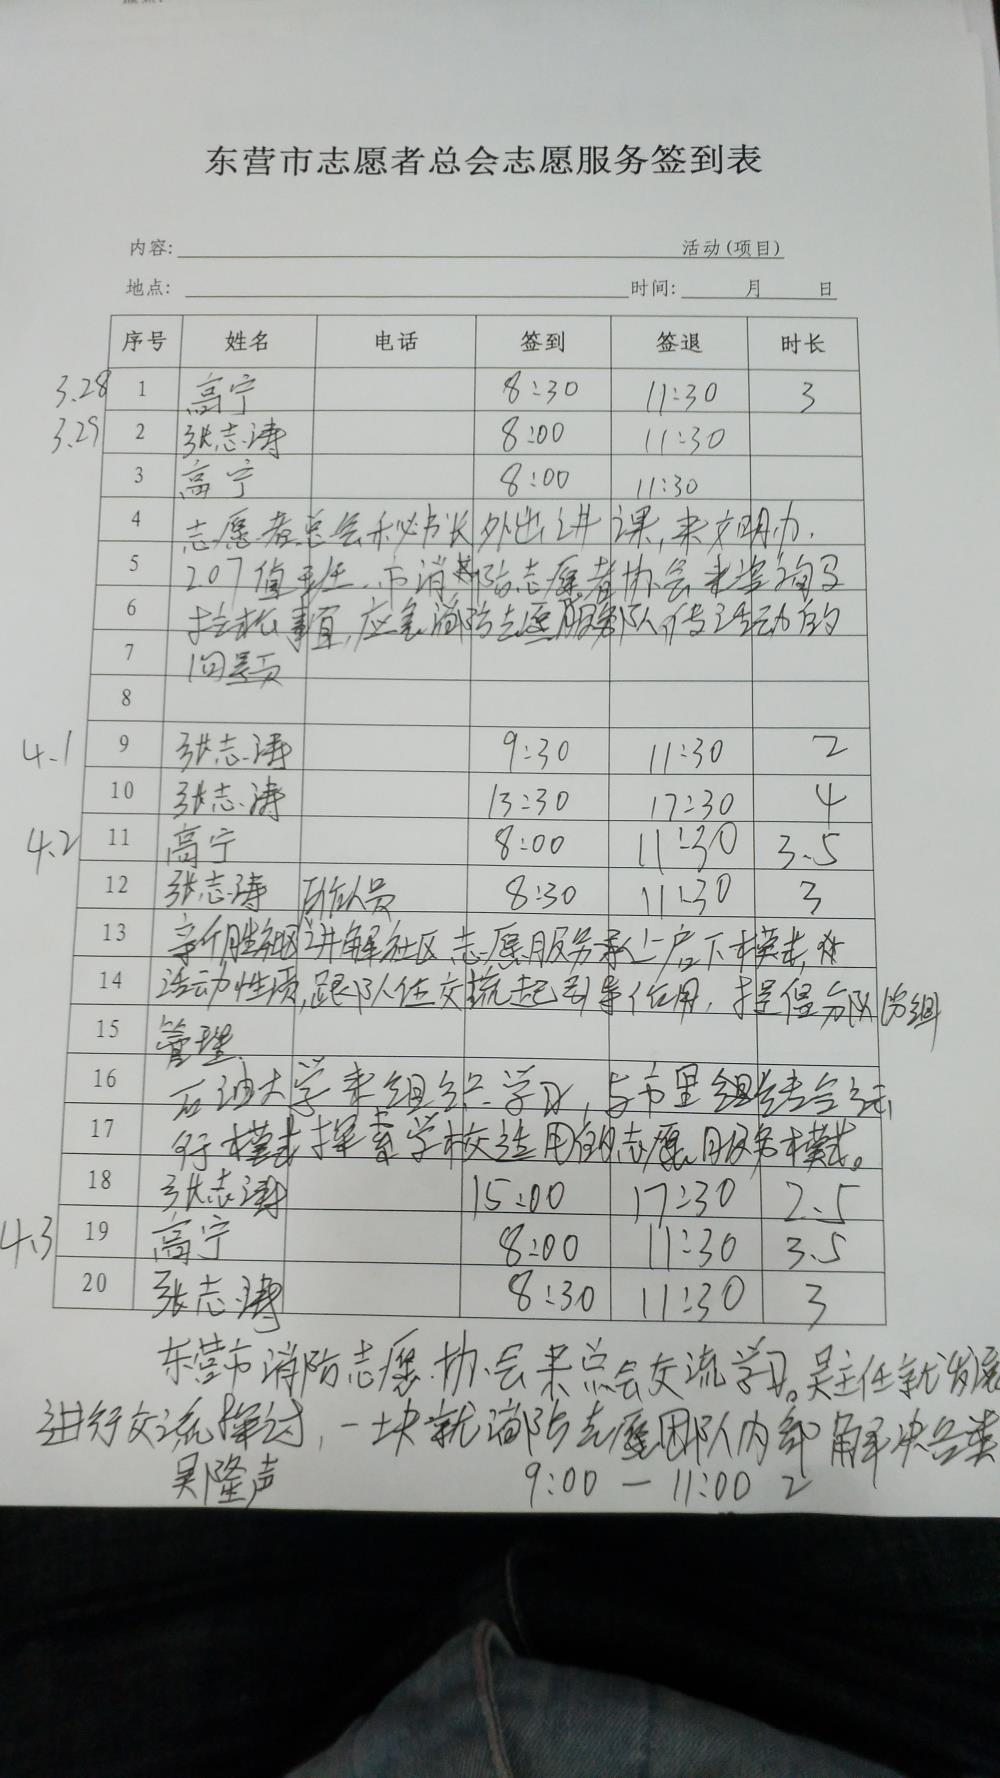 东营市志愿者总会志愿服务签到表
内容: 活动(项目)
地点: 时间: 月 日
序号 姓名 电话 签到 签退 时长
3.28 1 高宁 8:30 11:30 3
3.29 2 张志涛 8:00 11:30
3 高宁 8:00 11:30
4 志愿者总会秘书长外出讲课,来文明办.
5 207值班.市消防志愿者协会来咨询及
6 事宜,应急消防志愿服务队,活动的
7 问题
8
4.1 9 张志涛 9:30 11:30 2
10 张志涛 13:30 17:30 4
4.2 11 高宁 8:00 11:30 3.5
12 张志涛 工作人员 8:30 11:30 3
13 社区讲解社区志愿服务
14 活动性质,跟队伍交流起引导作用,分队分组
15 管理.
16 石油大学来组织学习,与市里组结合
17 行模式探索学校适用的志愿服务模式。
18 张志涛 15:00 17:30 2.5
4.3 19 高宁 8:00 11:30 3.5
20 张志涛 8:30 11:30 3
东营市消防志愿协会来总会交流学习。吴主任就发展
进行交流探讨,一块就消防志愿团队内部解决各类
吴隆声 9:00 — 11:00 2